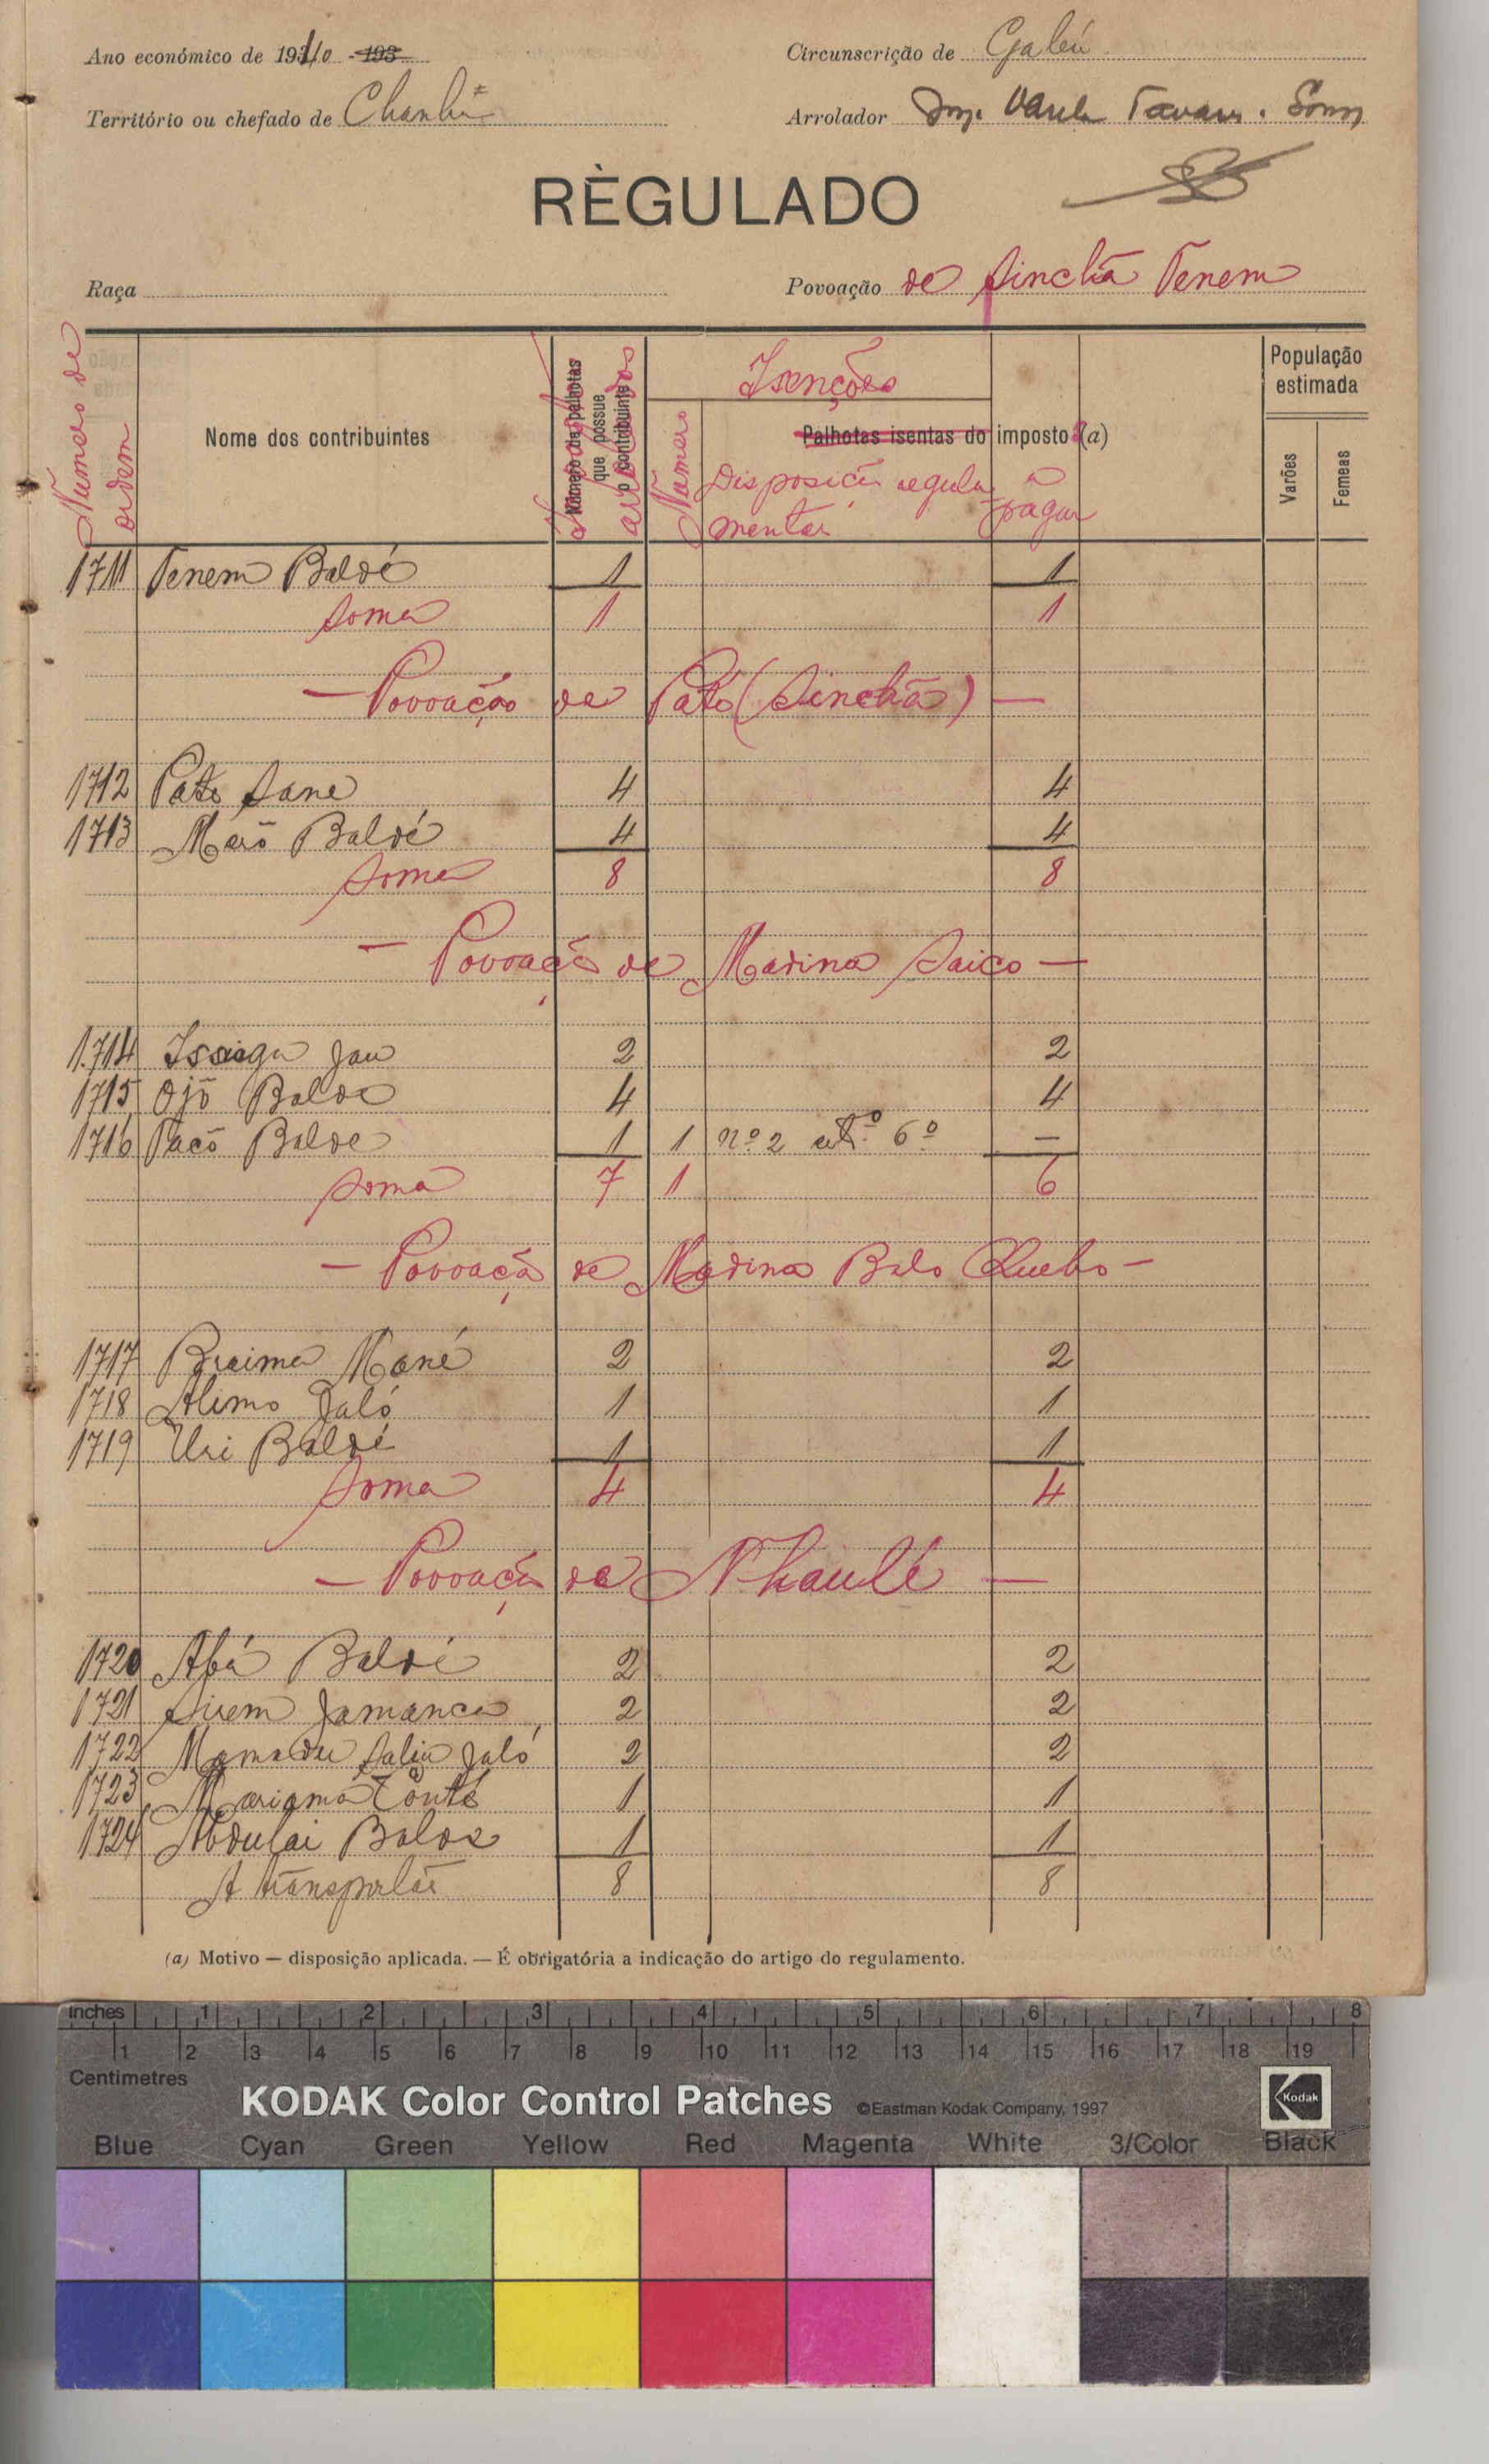 Ano económico de 1940 - 193
Circunscrição de Gabú
Território ou chefado de Chanhã
Arrolador Tavares
RÈGULADO
Raça
Povoação de Sinchã Tenem
Numero de ordem
Nome dos contribuintes
Número de palhotas que possue o contribuinte
arrolados
Isenções
Numero
Palhotas isentas do imposto (a)
Disposição regulamentar
a pagar
População estimada
Varões
Femeas
1711 Tenem Baldé 1 1
Soma 1 1
— Povoação de Pató (Sinchã) —
1712 Pató Sane 4 4
1713 Maró Baldé 4 4
Soma 8 8
— Povoação de Madina Saico —
1714 Issaga Jau 2 2
1715 Ojó Balde 4 4
1716 Pacó Balde 1 1 nº 2 artº 6º —
Soma 7 1 6
— Povoação de Madina Balo Quebo —
1717 Braima Mané 2 2
1718 Alimo Jaló 1 1
1719 Uri Baldé 1 1
Soma 4 4
— Povoação de Nhaulé —
1720 Abá Baldé 2 2
1721 Sirem Jamanca 2 2
1722 Mamadu Saliu Jaló 2 2
1723 Mariama Conté 1 1
1724 Abdulai Balde 1 1
A transportar 8 8
(a) Motivo — disposição aplicada. — É obrigatória a indicação do artigo do regulamento.
inches 1 2 3 4 5 6 7 8
1 2 3 4 5 6 7 8 9 10 11 12 13 14 15 16 17 18 19
Centimetres
KODAK Color Control Patches ©Eastman Kodak Company, 1997 Kodak
Blue Cyan Green Yellow Red Magenta White 3/Color Black